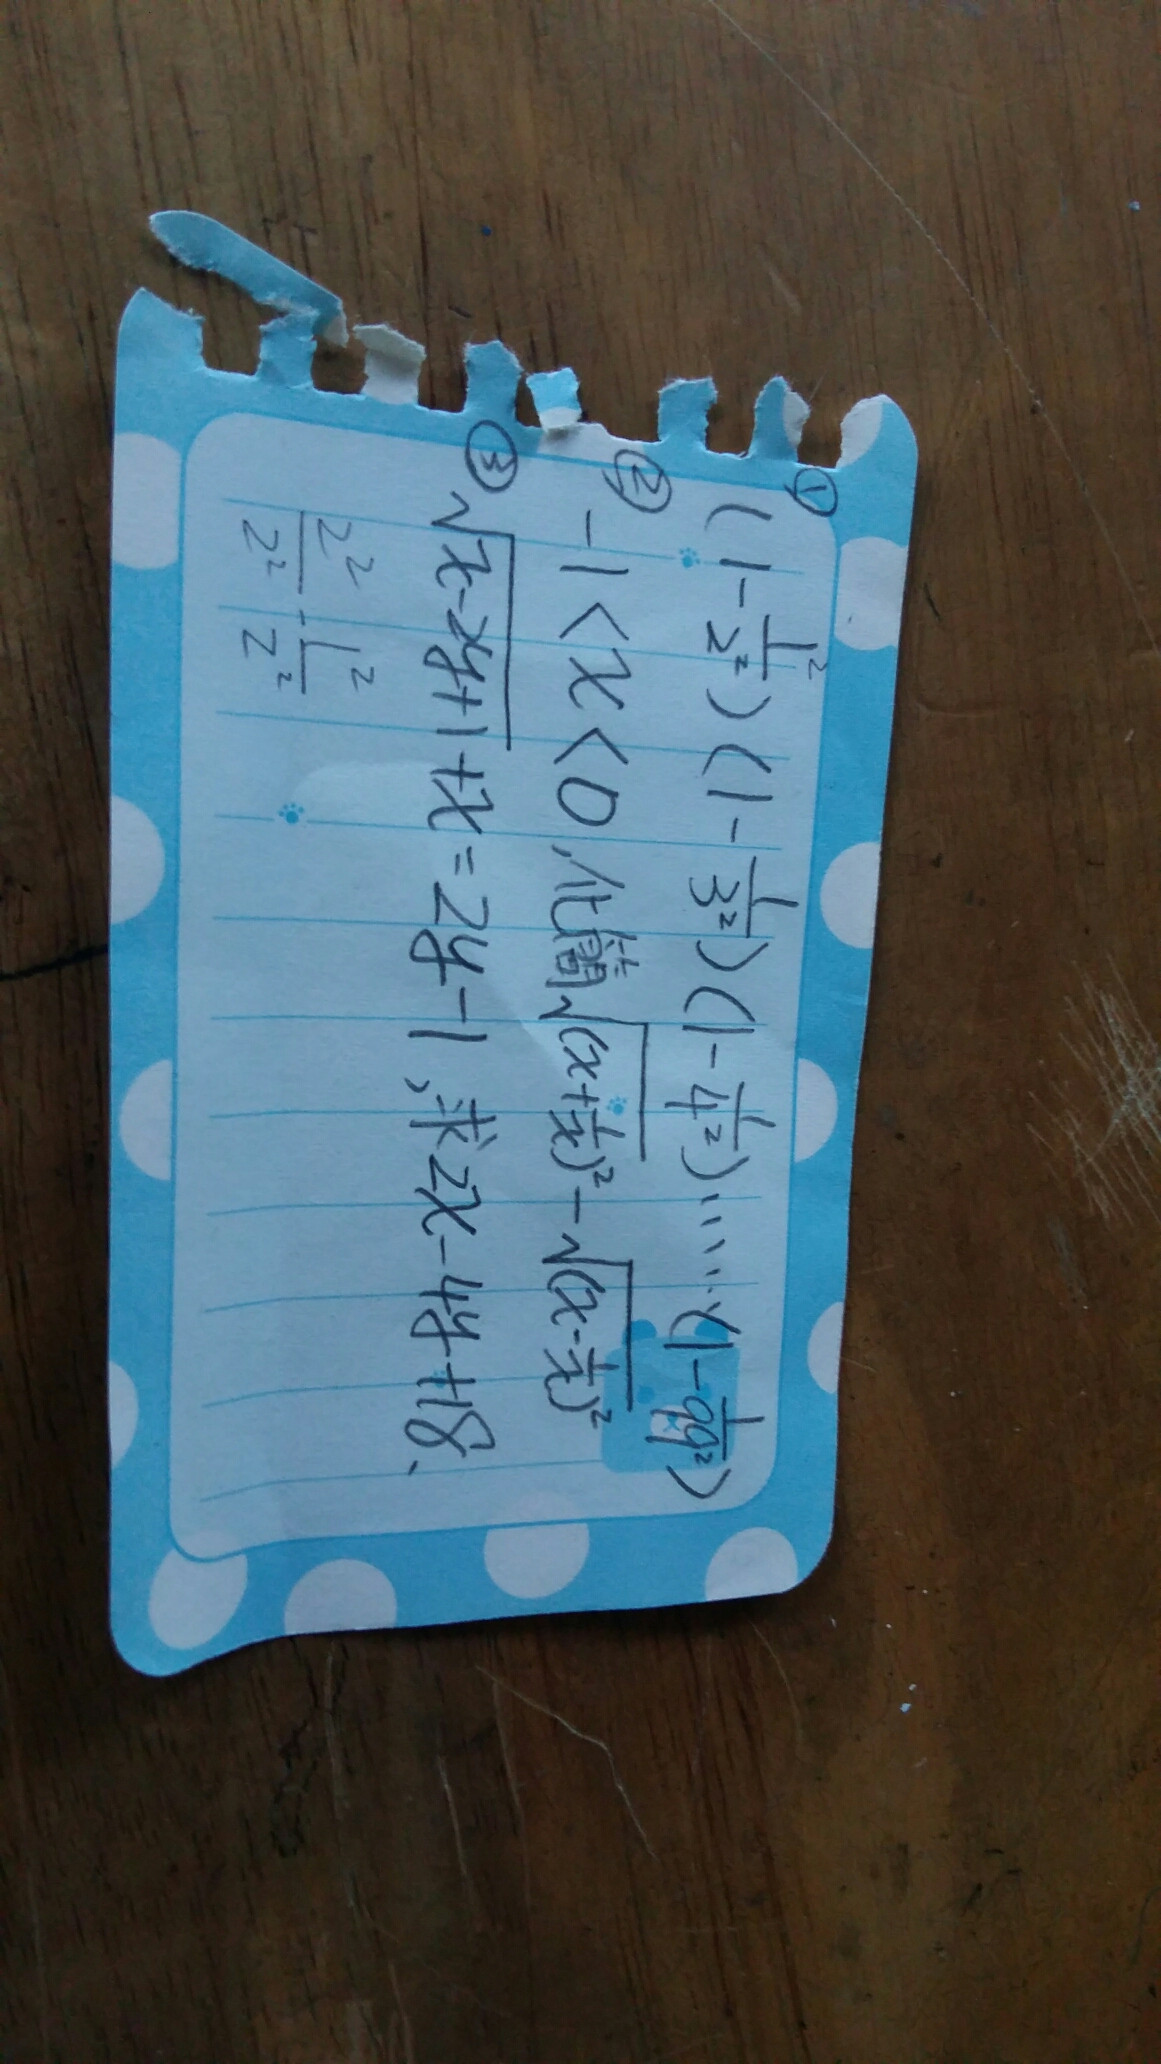 ① (1-1²/2²)(1-1/3²)(1-1/4²)……(1-1/99²)
② -1<x<0,化簡√(x+1/x)² - √(x-1/x)²
③ √x-2y+1 +x=2y-1,求2x-4y+18.
2²/2² - 1²/2²